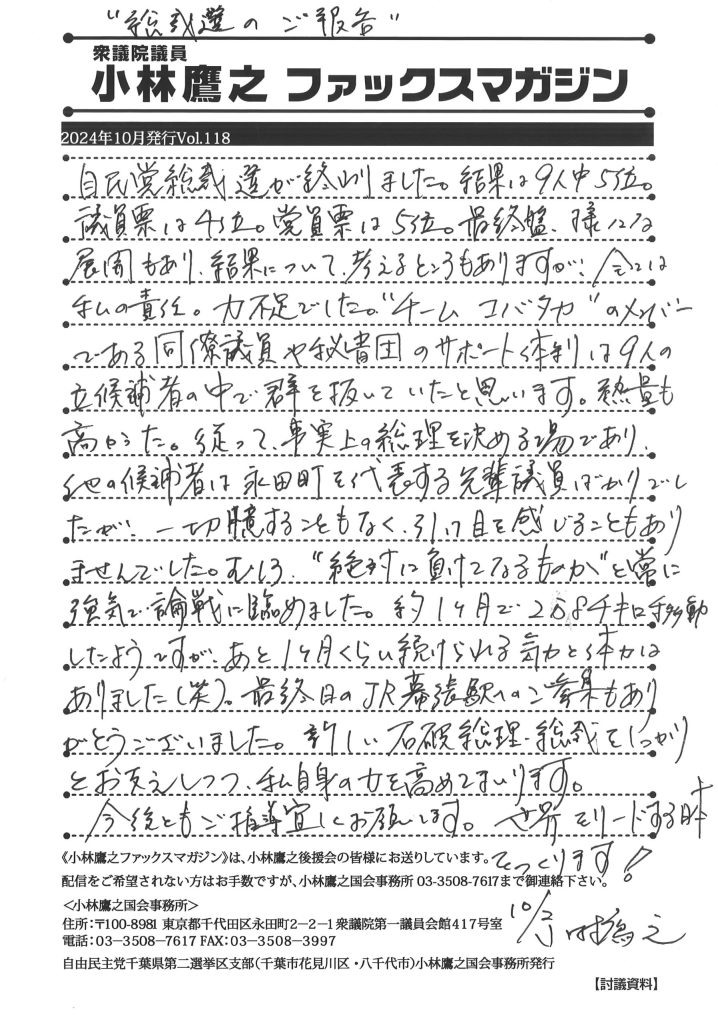 "総裁選のご報告"
衆議院議員
小林鷹之 ファックスマガジン
2024年10月発行Vol.118
自民党総裁選が終わりました。結果は9人中5位。
議員票は4位。党員票は5位。最終盤、様々な
展開もあり、結果について、考えるところもありますが、全ては
私の責任。力不足でした。"チーム コバタカ"のメンバー
である同僚議員や秘書団のサポート体制は9人の
立候補者の中で群を抜いていたと思います。熱量も
高かった。従って、事実上の総理を決める場であり、
他の候補者は永田町を代表する先輩議員ばかりでし
たが、一切臆することもなく、引け目を感じることもあり
ませんでした。むしろ、"絶対に負けてなるものか"と常に
強気で論戦に臨めました。約1ヶ月で チキロ移動
したようですが、あと1ヶ月くらい続けられる気力と体力は
ありました(笑)。最終日のJR幕張駅へのご参集もあり
がとうございました。新しい石破総理・総裁をしっかり
とお支えしつつ、私自身の力を高めてまいります。
今後ともご指導宜しくお願いします。世界をリードする日本
をつくります!
《小林鷹之ファックスマガジン》は、小林鷹之後援会の皆様にお送りしています。
配信をご希望されない方はお手数ですが、小林鷹之国会事務所 03-3508-7617まで御連絡下さい。
<小林鷹之国会事務所>
住所：〒100-8981 東京都千代田区永田町2－2－1衆議院第一議員会館417号室
電話：03－3508－7617 FAX：03－3508－3997
10/3 小林鷹之
自由民主党千葉県第二選挙区支部（千葉市花見川区・八千代市）小林鷹之国会事務所発行
【討議資料】